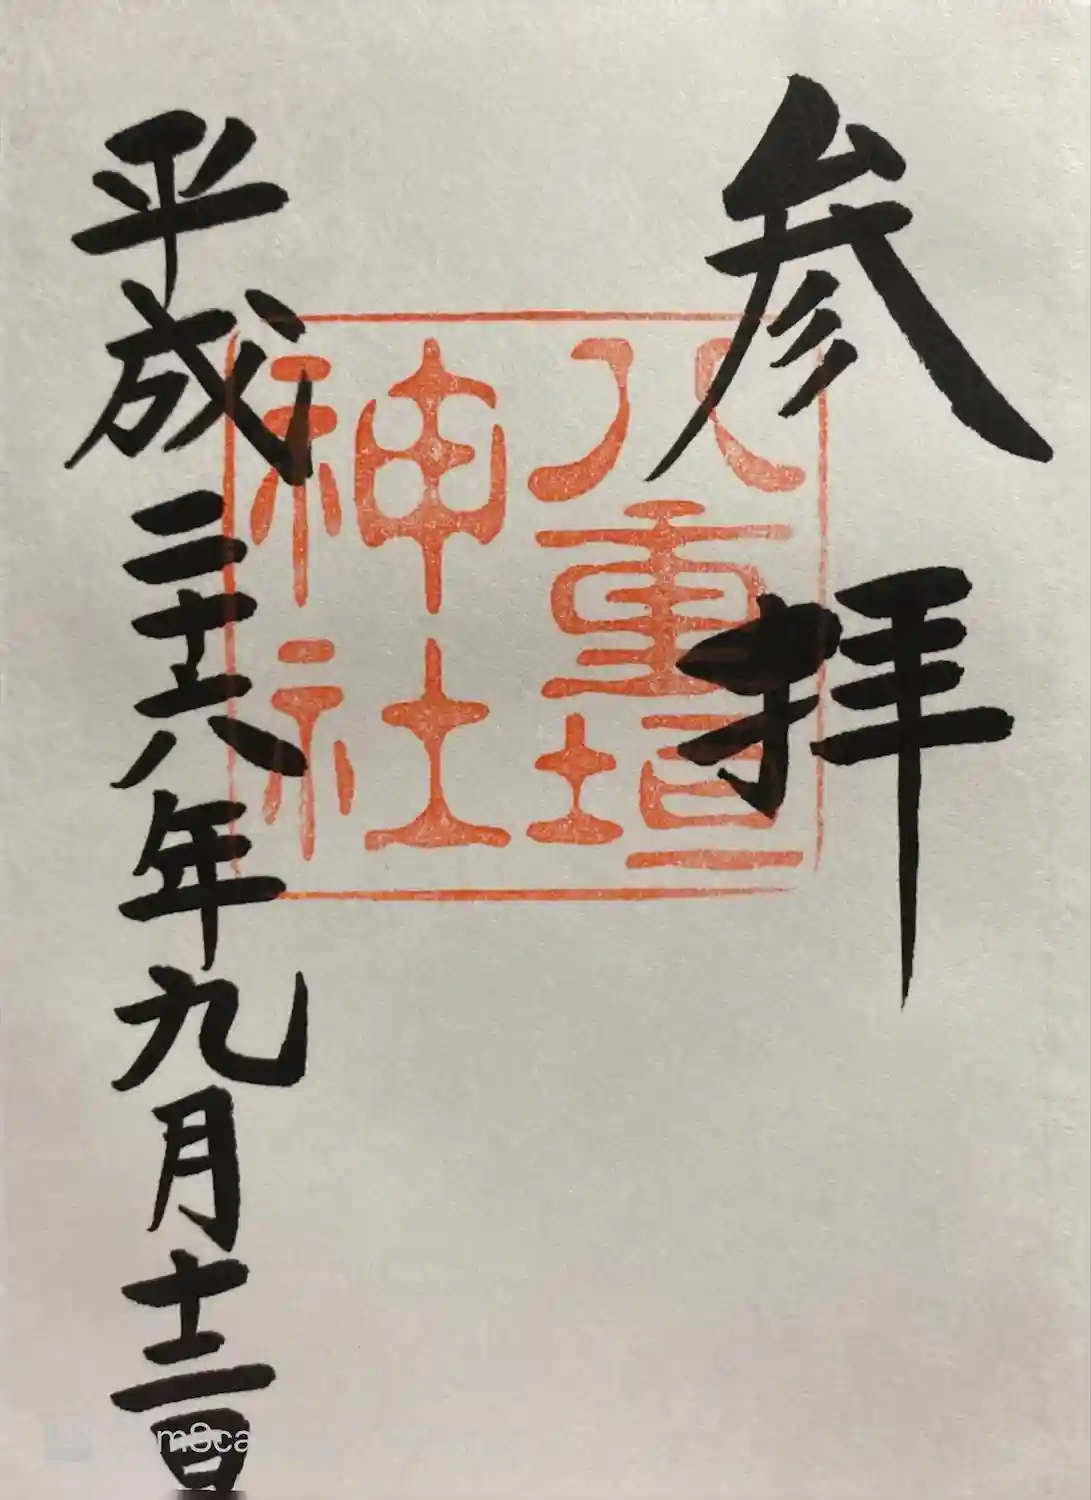 参拝
八重垣
神社
平成二十六年九月十二日
mSca